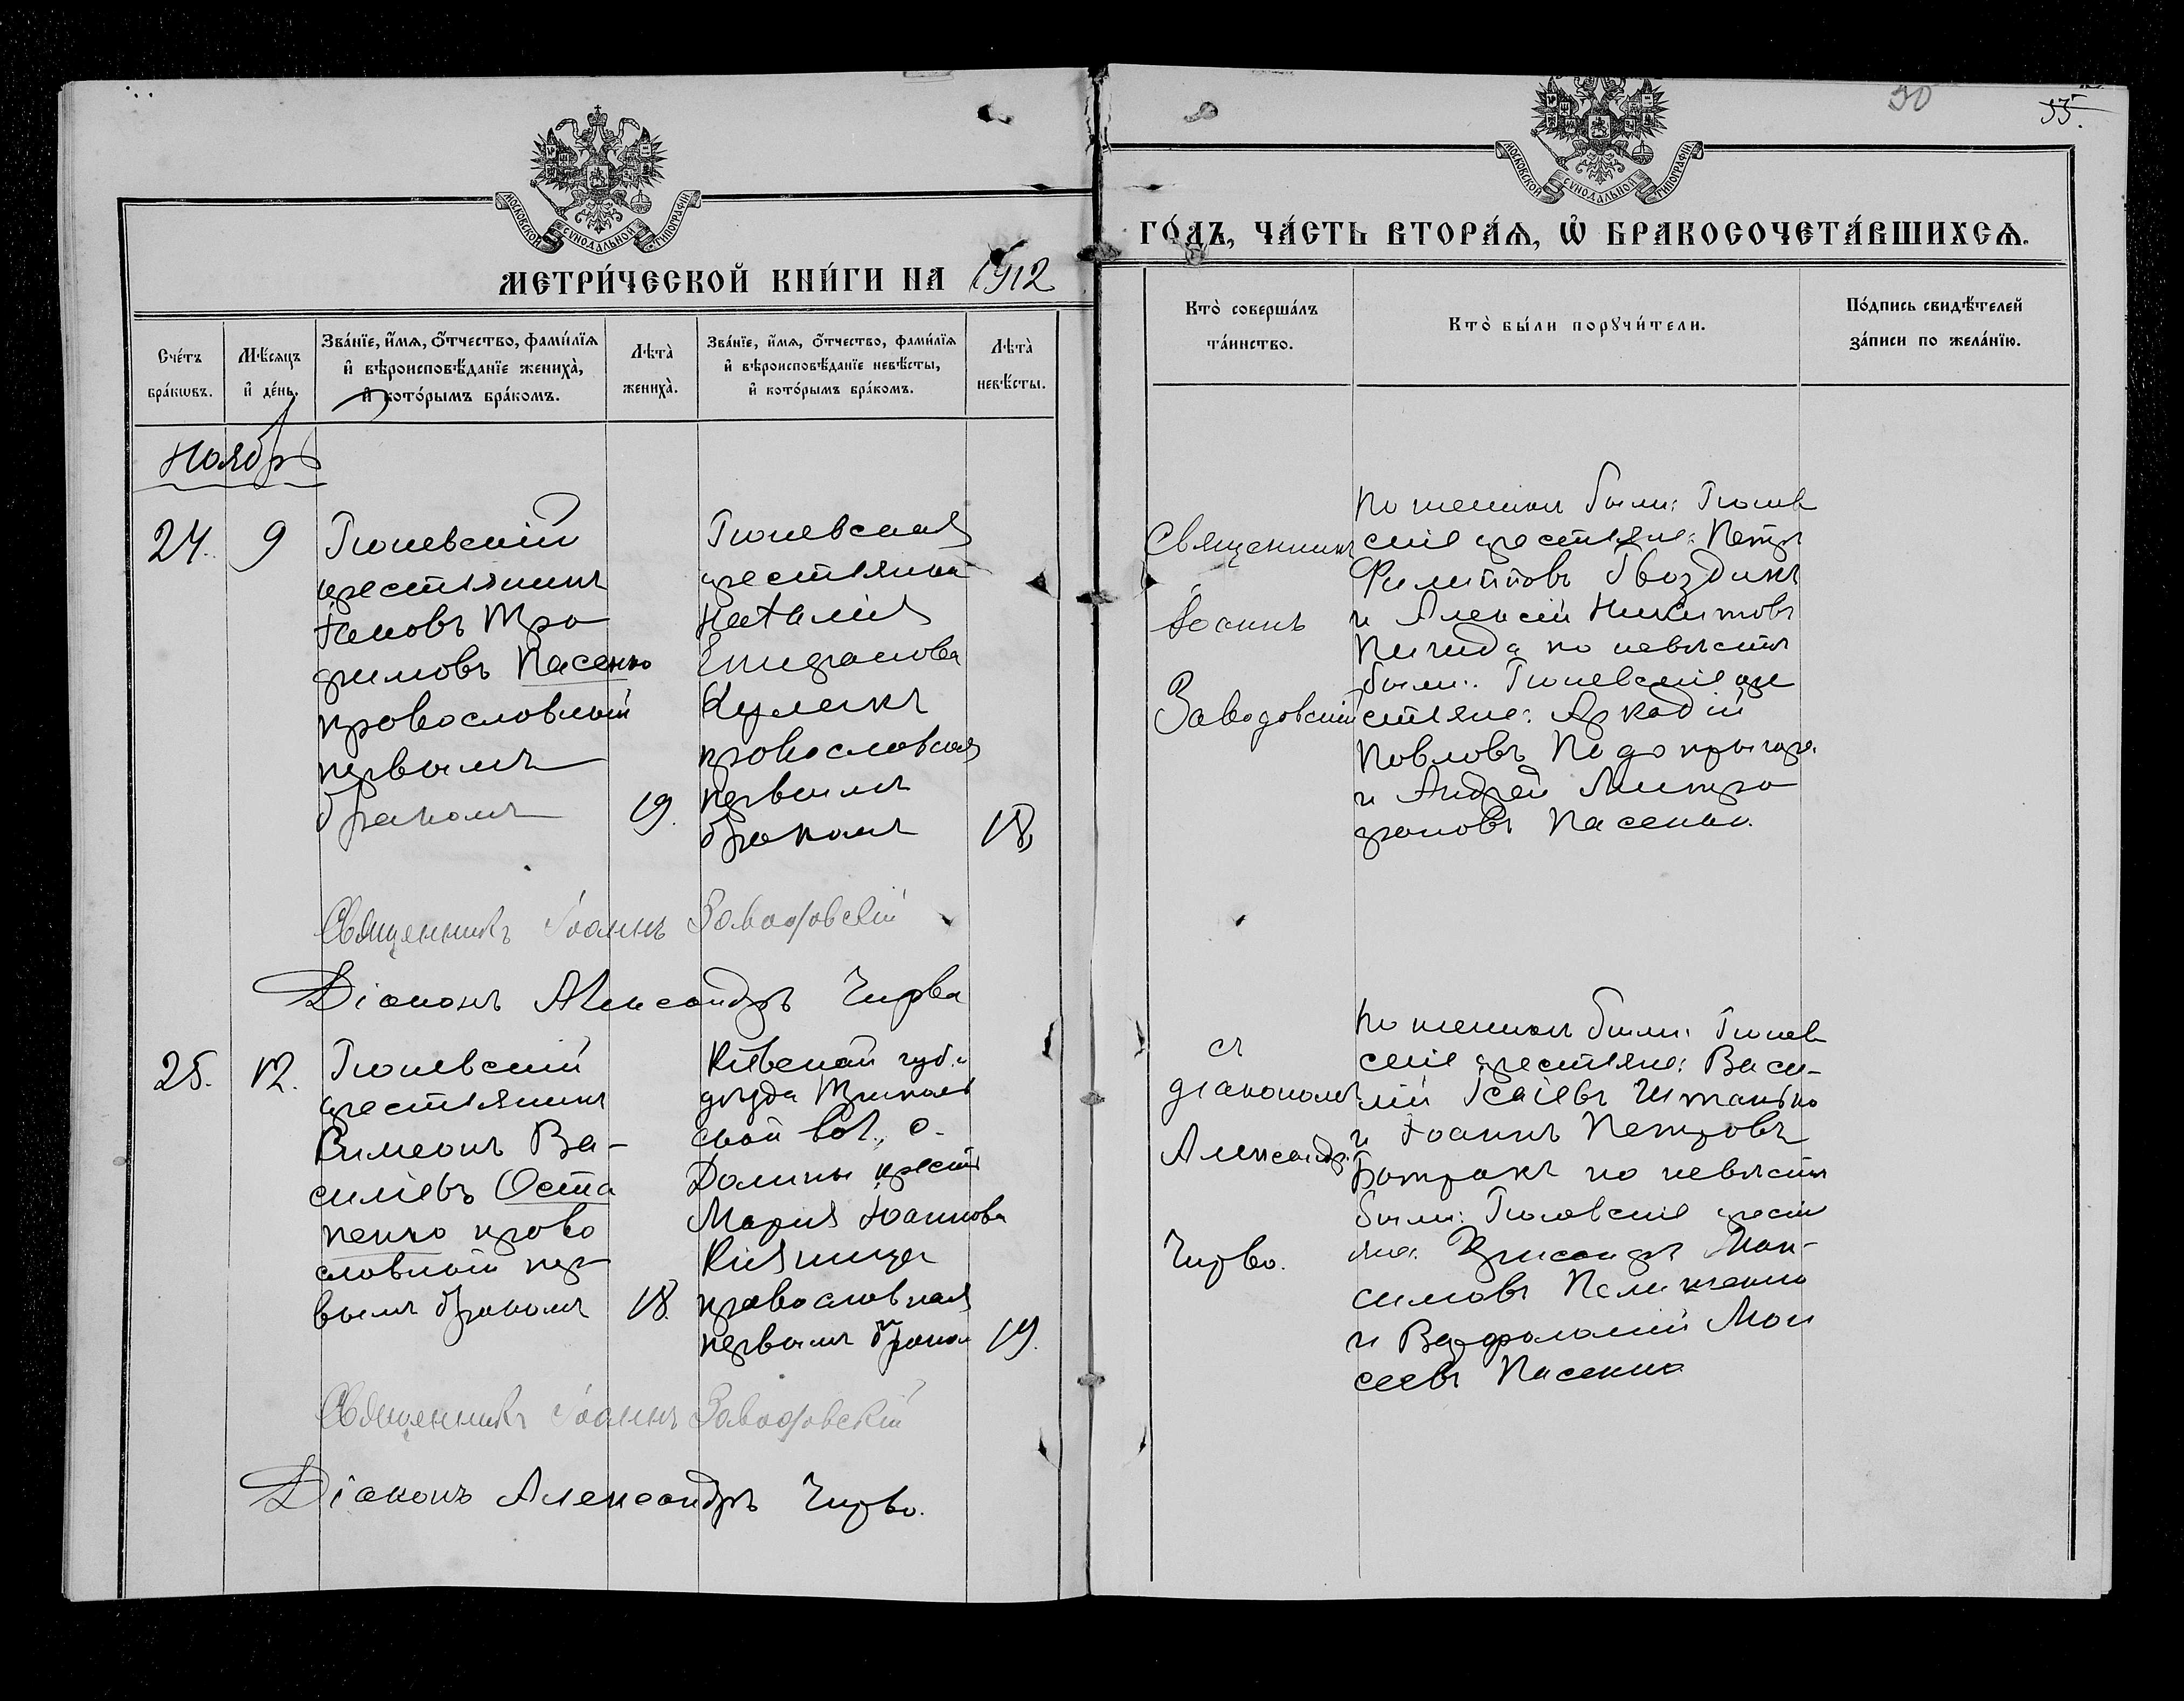 МОСКОВСКОЙ СУНОДАЛЬНОЙ ТИПОГРАФІИ
МЕТРИ́ЧЕСКОЙ КНИ́ГИ НА 1912
Сче́тъ бра́кωвъ.
Мѣ́сяцъ и҆ де́нь.
Зва́нїе, и҆́мя, ѻ҆́тчество, фами́лїя
и҆ вѣроисповѣ́данїе женихà,
и҆ кото́рымъ бра́комъ.
Лѣтà женихà.
Зва́нїе, и҆́мя, ѻ҆́тчество, фами́лїя
и҆ вѣроисповѣ́данїе невѣ́сты,
и҆ кото́рымъ бра́комъ.
Лѣтà невѣ́сты.
Ноябрь
24. 9
крестьянинъ
Іаковъ Тро
фимовъ Пасенко
православный
первымъ
бракомъ
19.
крестьянка
Наталія
православная
первымъ
бракомъ
18,
Священникъ Іоаннъ Заводовскій
Діаконъ Александръ Чирва
25. 12.
крестьянинъ
Симеонъ Ва-
силіевъ Оста
пенко право
славный пер
вымъ бракомъ
18.
Кіевской губ.
вол., с.
Долины крест
Марія Іоаннова
православная
первымъ брако
19.
Священникъ Іоаннъ Заводовскій
Діаконъ Александръ Чирва.
30
35.
МОСКОВСКОЙ СУНОДАЛЬНОЙ ТИПОГРАФІИ
ГО́ДЪ, ЧА́СТЬ ВТОРА́Я, Ѡ҆ БРАКОСОЧЕТА́ВШИХСЯ.
Кто̀ соверша́лъ
та́инство.
Кто̀ бы́ли порꙋчи́тели.
По́дпись свидѣ́телей
за́писи по жела́нїю.
Священникъ
Іоаннъ
Заводовскій
по женихѣ были:
скіе крестьяне: Петръ
Филипповъ Гвоздикъ
и Алексій Никитовъ
по невѣстѣ
были:
стьяне: Аркадій
Павловъ
и Андрей Митро
фановъ Пасенко.
съ
діакономъ
Александр.
Чирво.
по женихѣ были:
скіе крестьяне: Васи-
лій Ісаіевъ Штанько
и Іоаннъ Петровъ
Батракъ по невѣстѣ
были: крест
яне: Мак-
симовъ
и Варфоломій Мои
сеевъ Пасенко